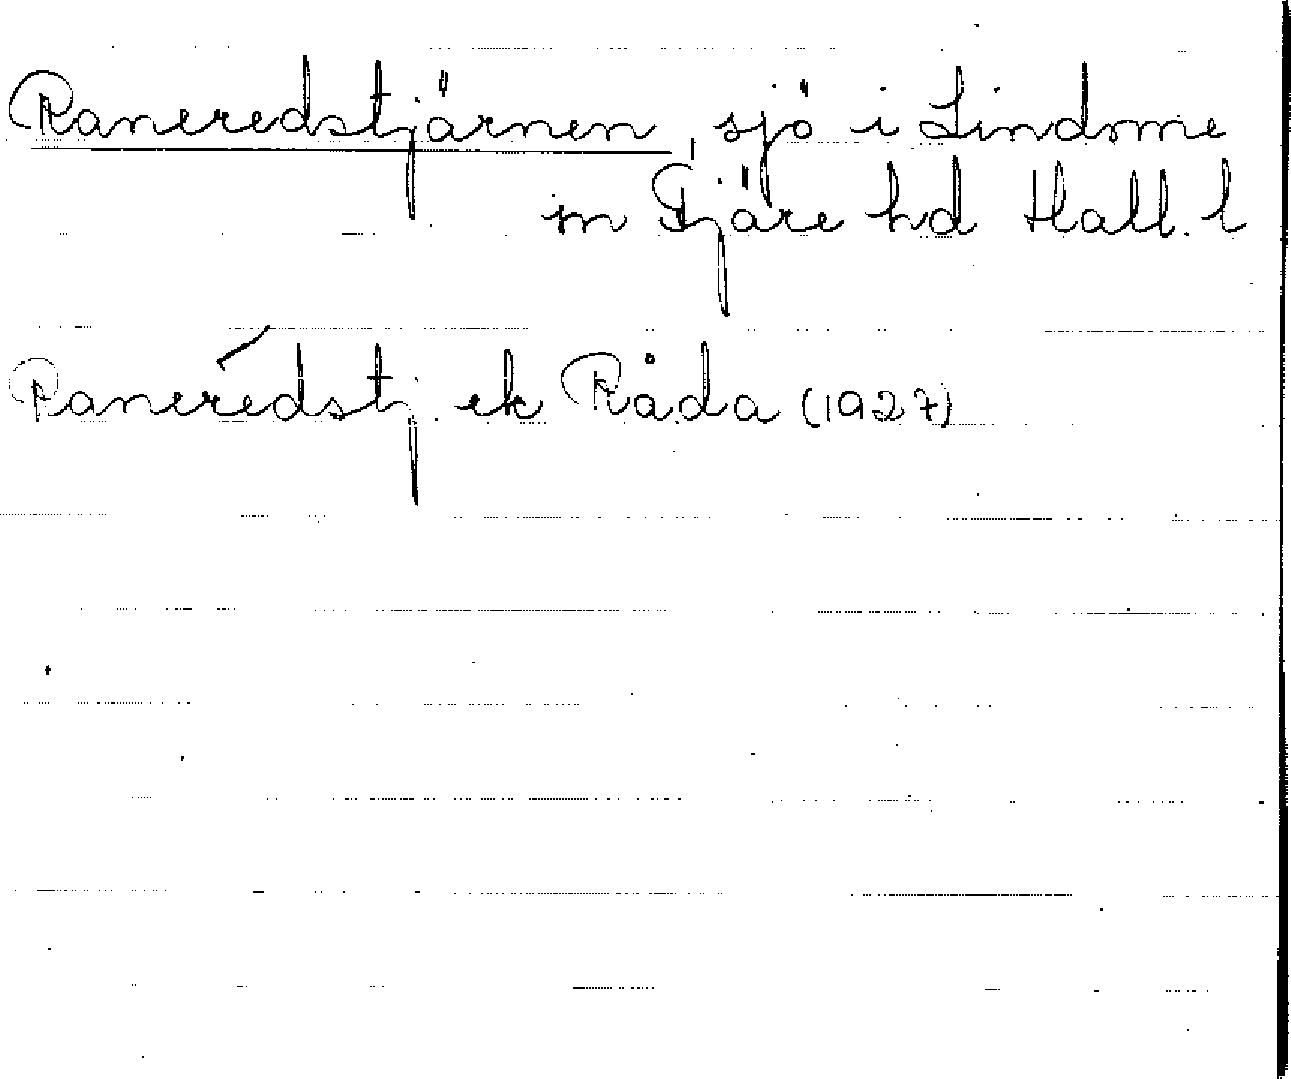 Raneredstjärnen, sjö i Lindome
sn Fjäre hd Hall. l
Raneredstj. ek Råda (1927)